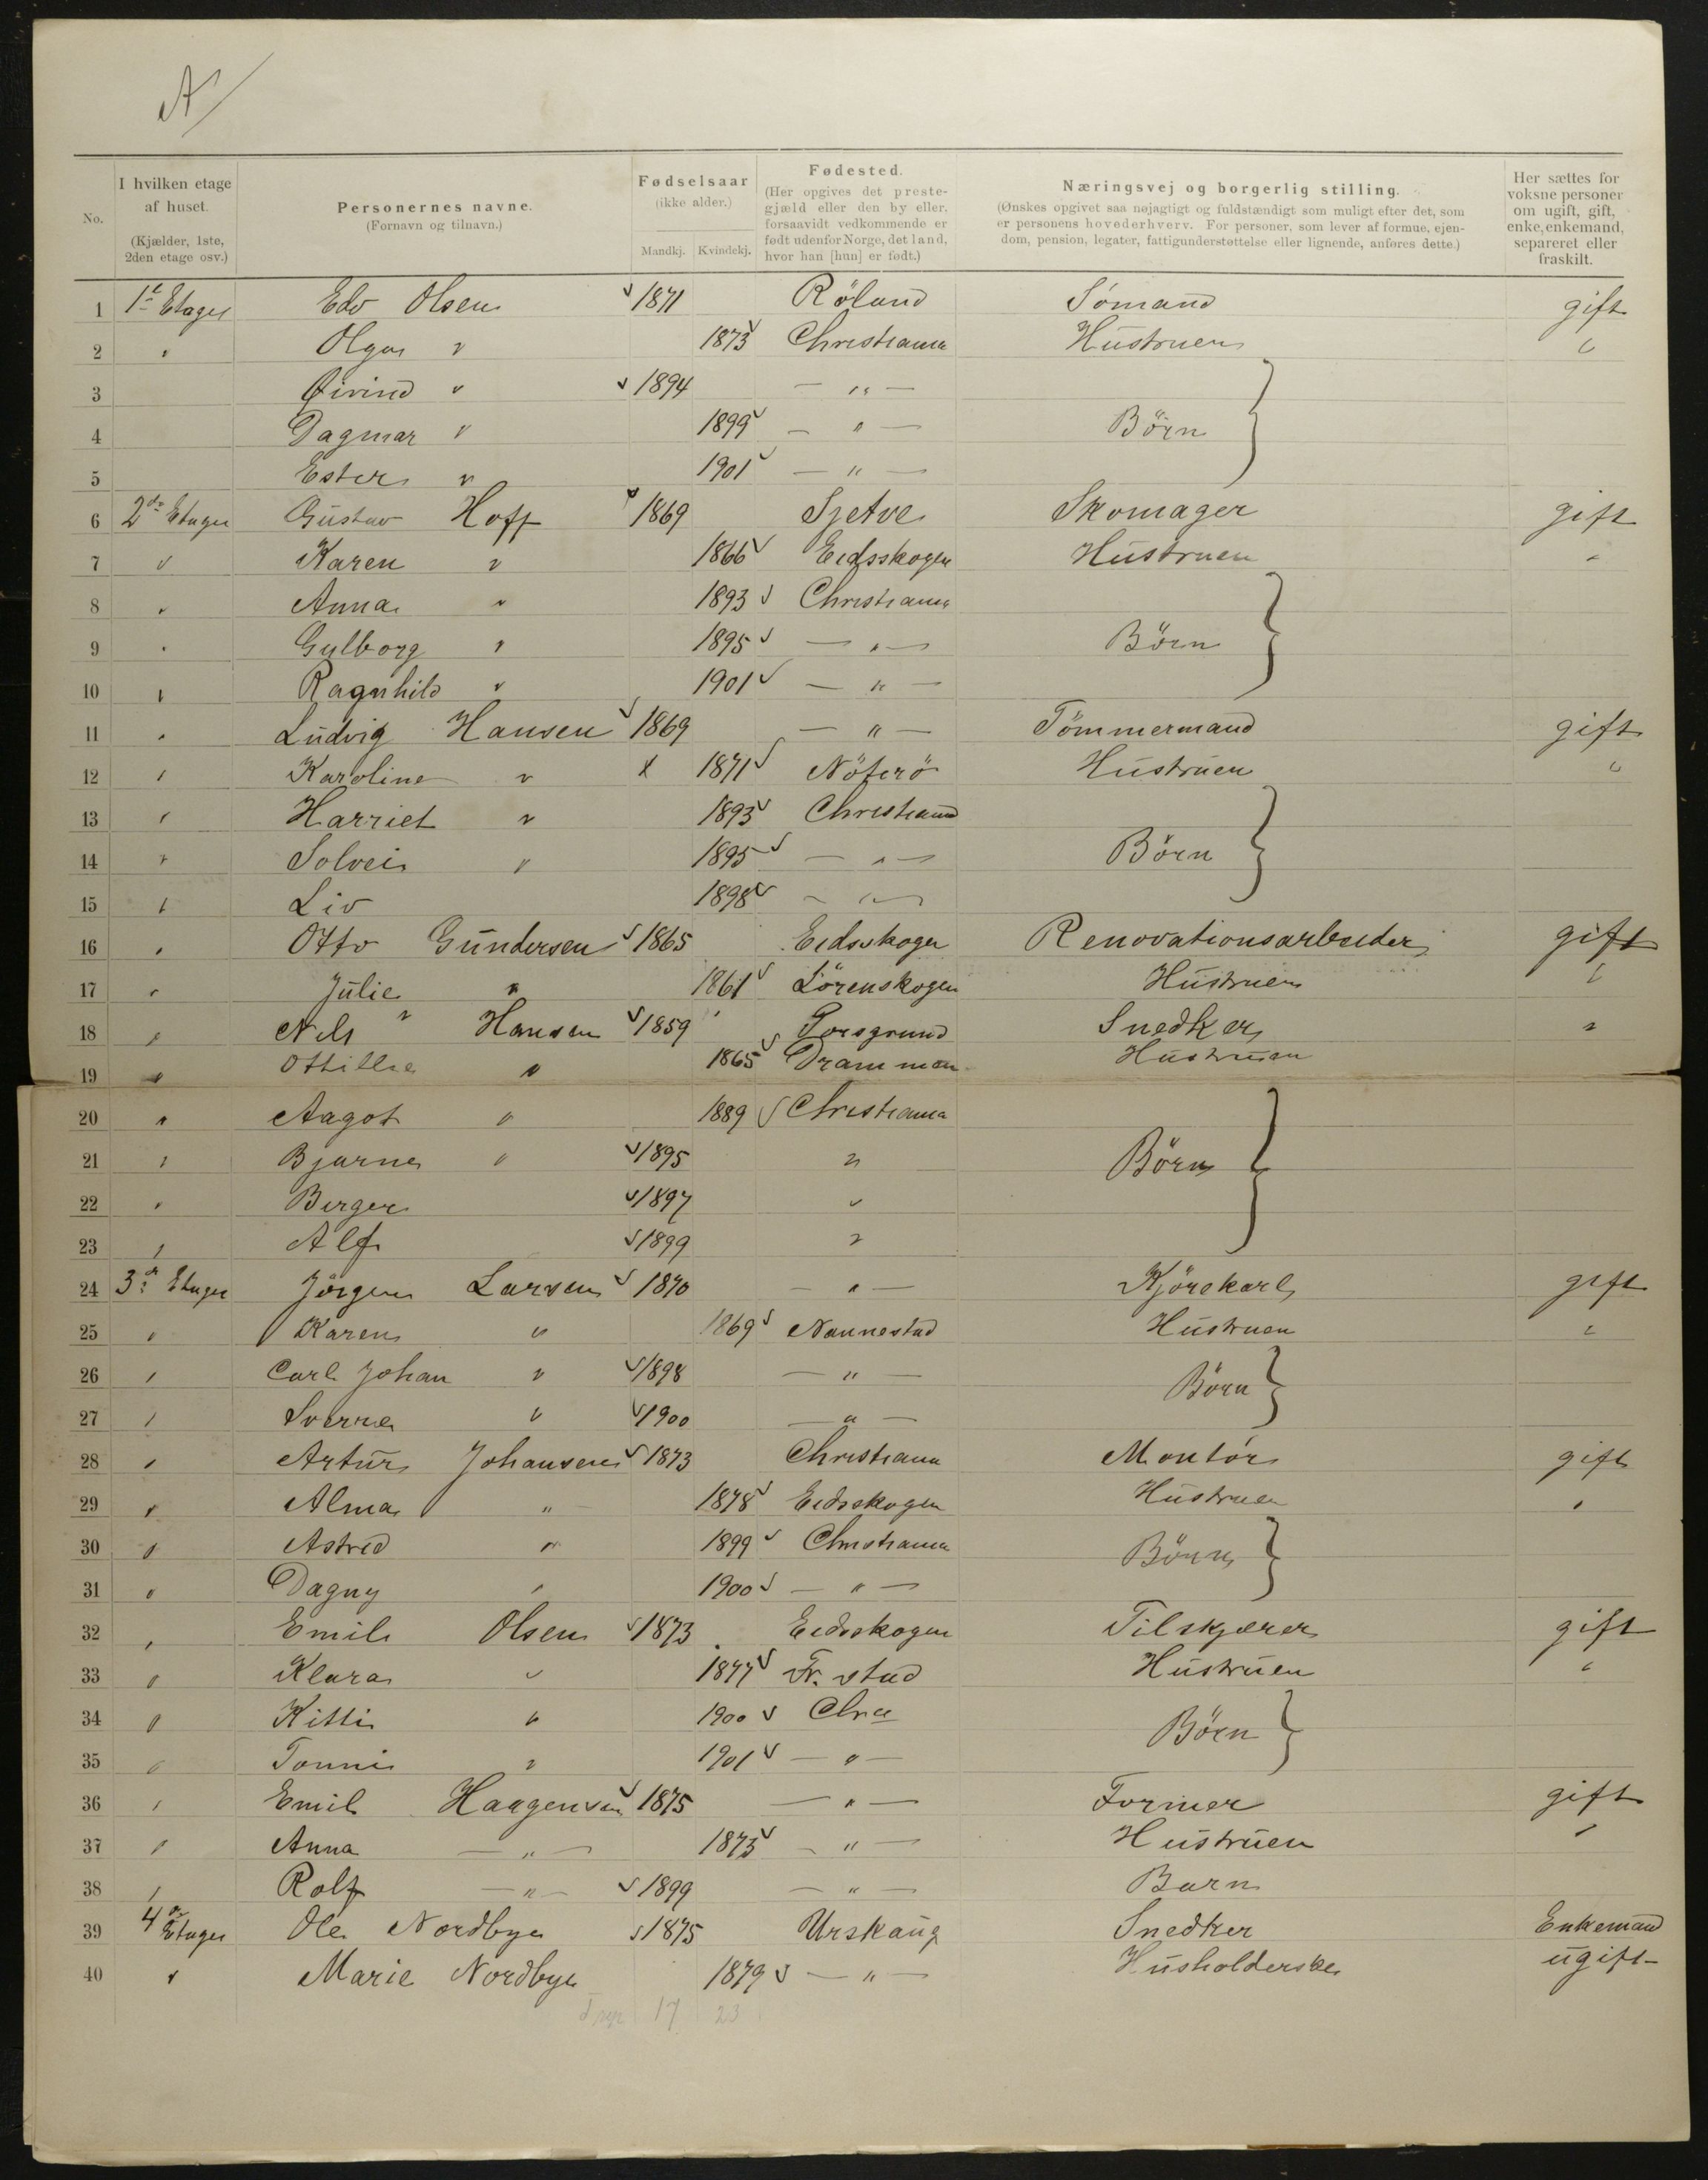 A/
No. I hvilken etage af huset. (Kjælder, 1ste, 2den etage osv.) Personernes navne. (Fornavn og tilnavn.) Fødselsaar (ikke alder.) Mandkj. Kvindekj. Fødested. (Her opgives det prestegjæld eller den by eller, forsaavidt vedkommende er født udenfor Norge, det land, hvor han [hun] er født.) Næringsvej og borgerlig stilling. (Ønskes opgivet saa nøjagtigt og fuldstændigt som muligt efter det, som er personens hovederhverv. For personer, som lever af formue, ejendom, pension, legater, fattigunderstøttelse eller lignende, anføres dette.) Her sættes for voksne personer om ugift, gift, enke, enkemand, separeret eller fraskilt.
1 1ste Etage Edv Olsen 1871 Röland Sömand gift
2 " Olga " 1873 Christiania Hustruen "
3 Øivind " 1894 — " —
4 Dagmar " 1899 — " — Börn
5 Ester " 1901 — " —
6 2den Etage Gustav Hoff 1869 Skomager gift
7 " Karen " 1866 Eidsskogen Hustruen "
8 " Anna " 1893 Christiania
9 " Gulborg " 1895 — " — Börn
10 " Ragnhild " 1901 — " —
11 " Ludvig Hansen 1869 — " — Tömmermand gift
12 " Karoline " X 1871 Nöterö Hustruen "
13 " Harriet " 1893 Christiania
14 " Solvei " 1895 — " — Börn
15 " Liv 1898 — " —
16 " Otto Gundersen 1865 Eidsskogen Renovationsarbeider gift
17 " Julie " 1861 Lörenskogen Hustruen "
18 " Nils " Hansen 1859 Porsgrund Snedker "
19 " Ottillie " 1865 Drammen Hustruen
20 " Aagot " 1889 Christiania
21 " Bjarne " 1895 " Börn
22 " Birger 1897 "
23 " Alf 1899 "
24 3die Etage Jörgen Larsen 1870 — " — Kjörekarl gift
25 " Karen " 1869 Nannestad Hustruen "
26 " Carl Johan " 1898 — " — Börn
27 " Sverre " 1900 — " —
28 " Artur Johansen 1873 Christiania Montör gift
29 " Alma " 1878 Eidsskogen Hustruen "
30 " Astrid " 1899 Christiania Börn
31 " Dagny " 1900 — " —
32 " Emil Olsen 1873 Eidsskogen Tilskjærer gift
33 " Klara " 1877 Fr. stad Hustruen "
34 " Kitti " 1900 Chra Börn
35 " Tonni " 1901 — " —
36 " Emil Haagensen 1875 — " — Former gift
37 " Anna — " — 1873 — " — Hustruen "
38 " Rolf — " — 1899 — " — Barn
39 4de Etage Ole Nordbye 1875 Urskaug Snedker Enkemand
40 " Marie Nordbye 1879 — " — Husholderske ugift
17 23